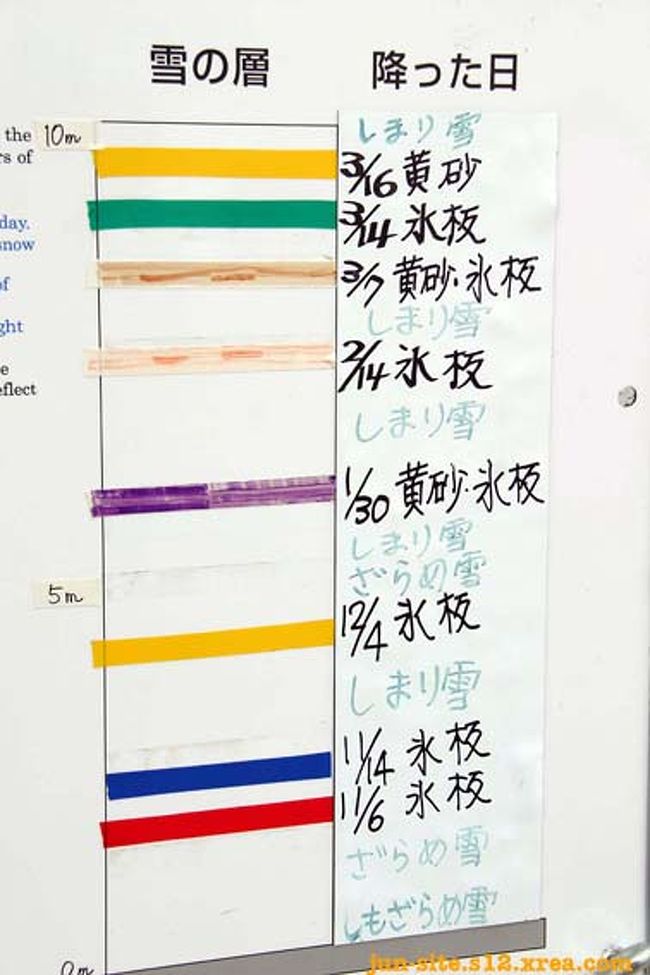 雪の層 降った日
the
rs of
day.
snow
of
ght
e
eflect
10m
5m
0m
しまり雪
3/16 黄砂
3/14 氷板
3/7 黄砂・氷板
しまり雪
2/14 氷板
しまり雪
1/30 黄砂・氷板
しまり雪
ざらめ雪
12/4 氷板
しまり雪
11/14 氷板
11/6 氷板
ざらめ雪
しもざらめ雪
jun-site.s12.xrea.com